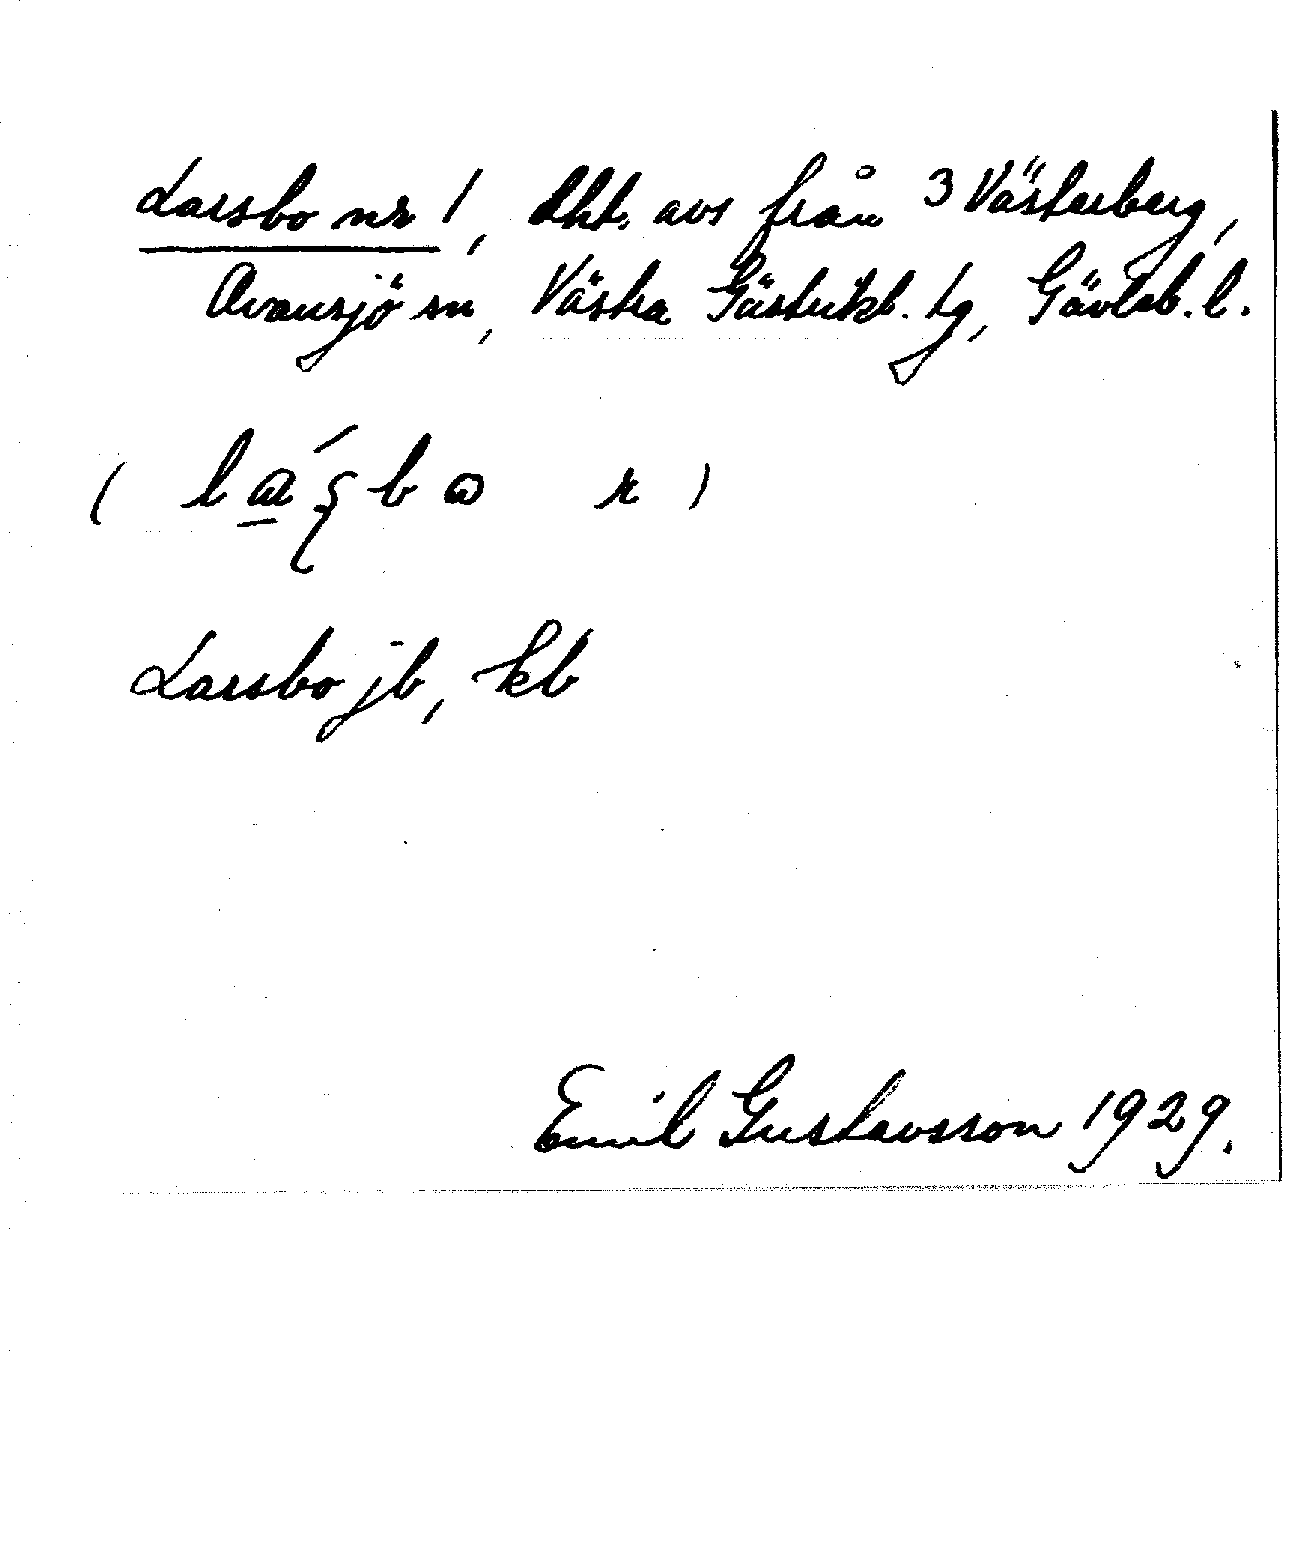 Larsbo nr 1, lht. avs från 3 Västerberg,
Ovansjö sn, Västra Gästrikl. tg, Gävleb. l.
Larsbo jb, kb
Emil Gustavsson 1929.